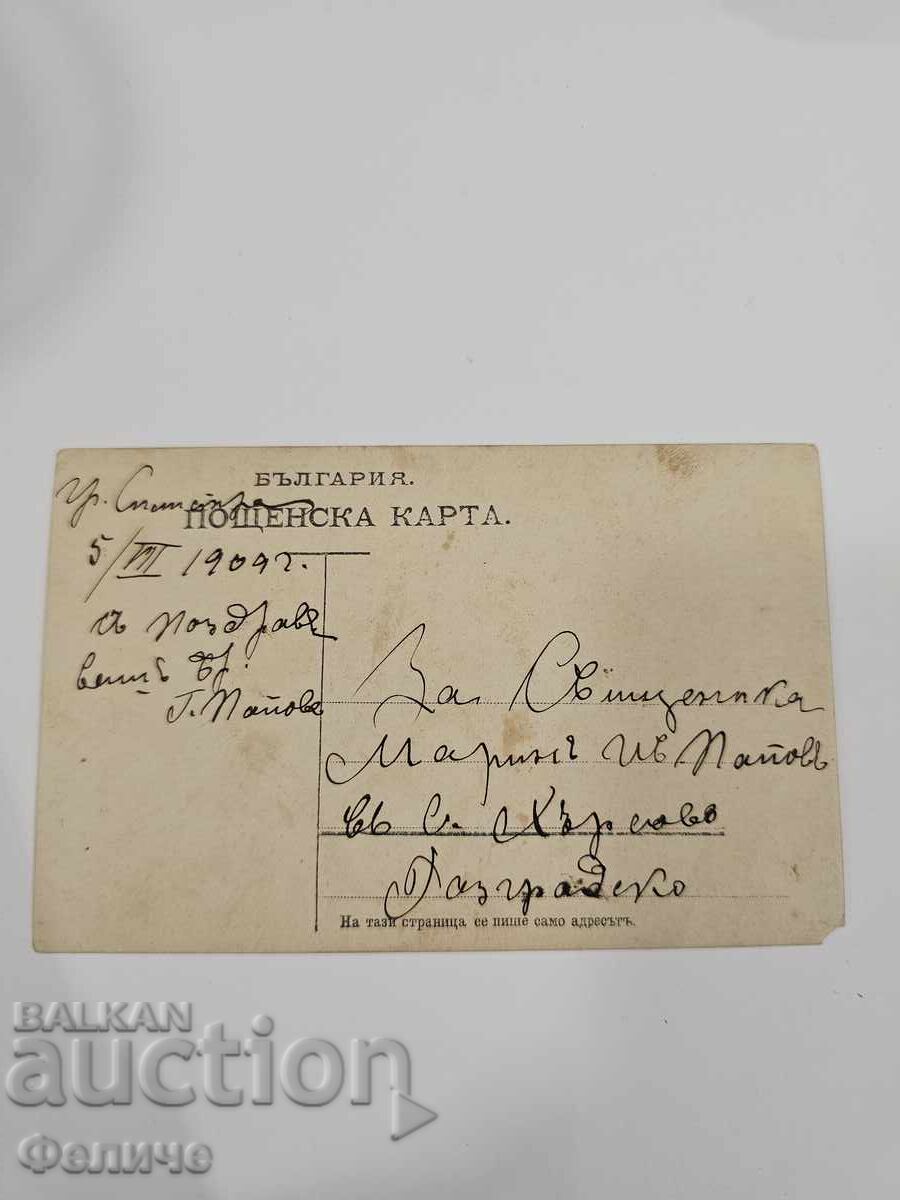 БЪЛГАРИЯ.
ПОЩЕНСКА КАРТА.
гр.
5/VII 1909 г.
съ поздравъ
вашъ бр.
Г. Паповъ
За Свещеника
Маринъ Ив Паповъ
въ с. Хърсово
Разградско
На тази страница се пише само адресътъ.
BALKAN
auction
Феличе